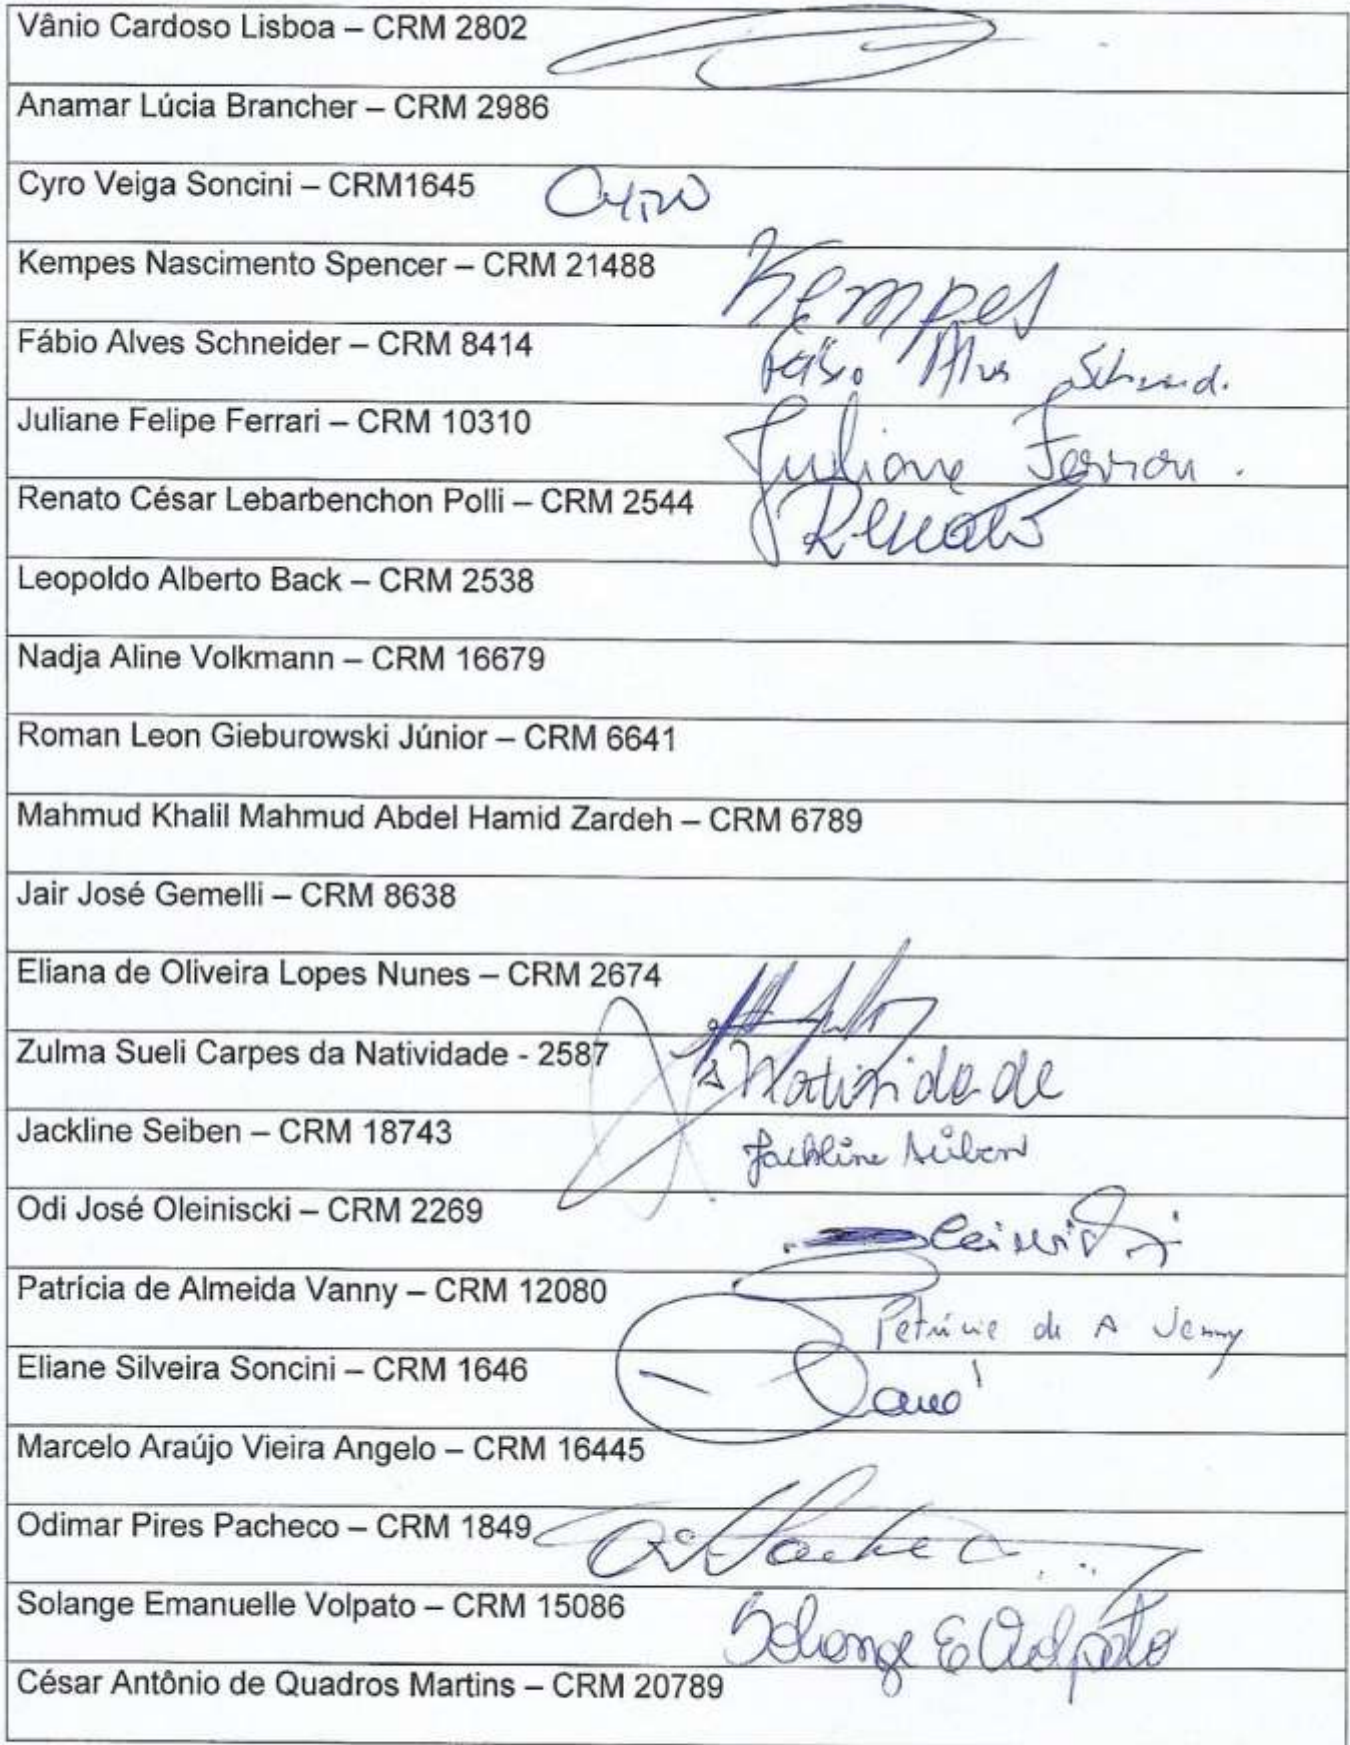 Vânio Cardoso Lisboa – CRM 2802
Anamar Lúcia Brancher – CRM 2986
Cyro Veiga Soncini – CRM1645 Cyro
Kempes Nascimento Spencer – CRM 21488 Kempes
Fábio Alves Schneider – CRM 8414 Fábio Alves Schneid.
Juliane Felipe Ferrari – CRM 10310 Juliane Ferrari.
Renato César Lebarbenchon Polli – CRM 2544 Renato
Leopoldo Alberto Back – CRM 2538
Nadja Aline Volkmann – CRM 16679
Roman Leon Gieburowski Júnior – CRM 6641
Mahmud Khalil Mahmud Abdel Hamid Zardeh – CRM 6789
Jair José Gemelli – CRM 8638
Eliana de Oliveira Lopes Nunes – CRM 2674
Zulma Sueli Carpes da Natividade - 2587 Natividade
Jackline Seiben – CRM 18743 Jackline Seiben
Odi José Oleiniscki – CRM 2269
Patrícia de Almeida Vanny – CRM 12080 Patrícia de A Vanny
Eliane Silveira Soncini – CRM 1646
Marcelo Araújo Vieira Angelo – CRM 16445
Odimar Pires Pacheco – CRM 1849
Solange Emanuelle Volpato – CRM 15086 Solange E Volpato
César Antônio de Quadros Martins – CRM 20789